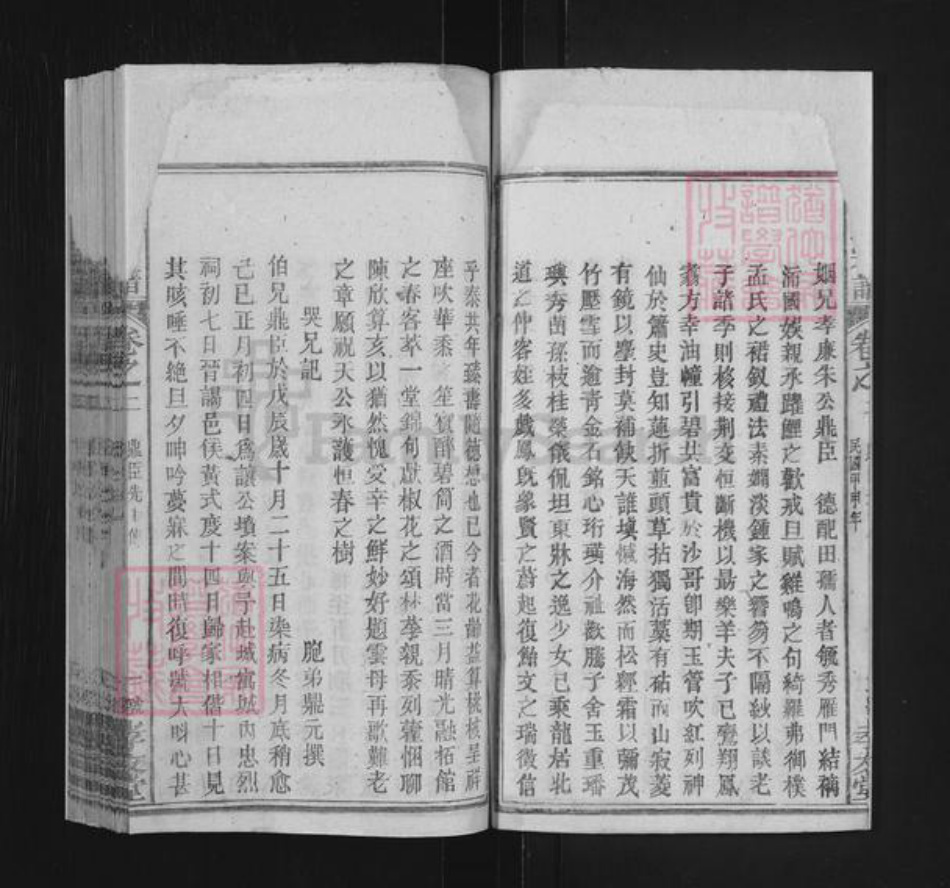 姻兄孝廉朱公鼎臣　德配田孺人者毓秀雁門結褵
沛國娛親承躍鯉之歡戒旦賦雞鳴之句綺羅弗御樸
孟氏之裙釵禮法素嫻淡鍾家之簪笏不隔紗以談老
子諸季則核接荆交恒斷機以勗樂羊夫子已鶱翔鳳
翥方幸油幢引碧共富貴於沙哥卽期玉管吹紅列神
仙於簫史豈知蓮折並頭草拈獨活藁有砧而山寂菱
有鏡以鸞封莫補缺天誰塡憾海然而松經霜以彌茂
竹壓雪而逾靑金石銘心珩璜介祉歡騰子舍玉重璠
璵秀茁孫枝桂榮儀佩坦東牀之逸少女已乘龍居北
道之仲容姪多戲鳳旣象賢之蔚起復飴文之瑞徵信
乎泰共年臻壽隨德想也已今者花齡益算桃核呈祥
座吹華黍　笙賓酣碧筒之酒時當三月晴光融柘館
之春客萃一堂錦旬獻椒花之頌林等親忝列蘿悃聊
陳欣算亥以猶然愧受辛之鮮妙好題雲母再歌難老
之章願祝天公永護恒春之樹
哭兄記　胞弟鼎元撰
伯兄鼎臣於戊辰歲十月二十五日染病冬月底稍愈
己巳正月初四日爲讓公墳案與予赴城當城內忠烈
祠初七日晉謁邑侯黃式度十四日歸家相偕十日見
其咳唾不絕旦夕呻吟夢寐之間時復呼號大明心甚
卷之
民國甲申年
孝友堂
卷之二
鼎臣先生傳
孝友堂